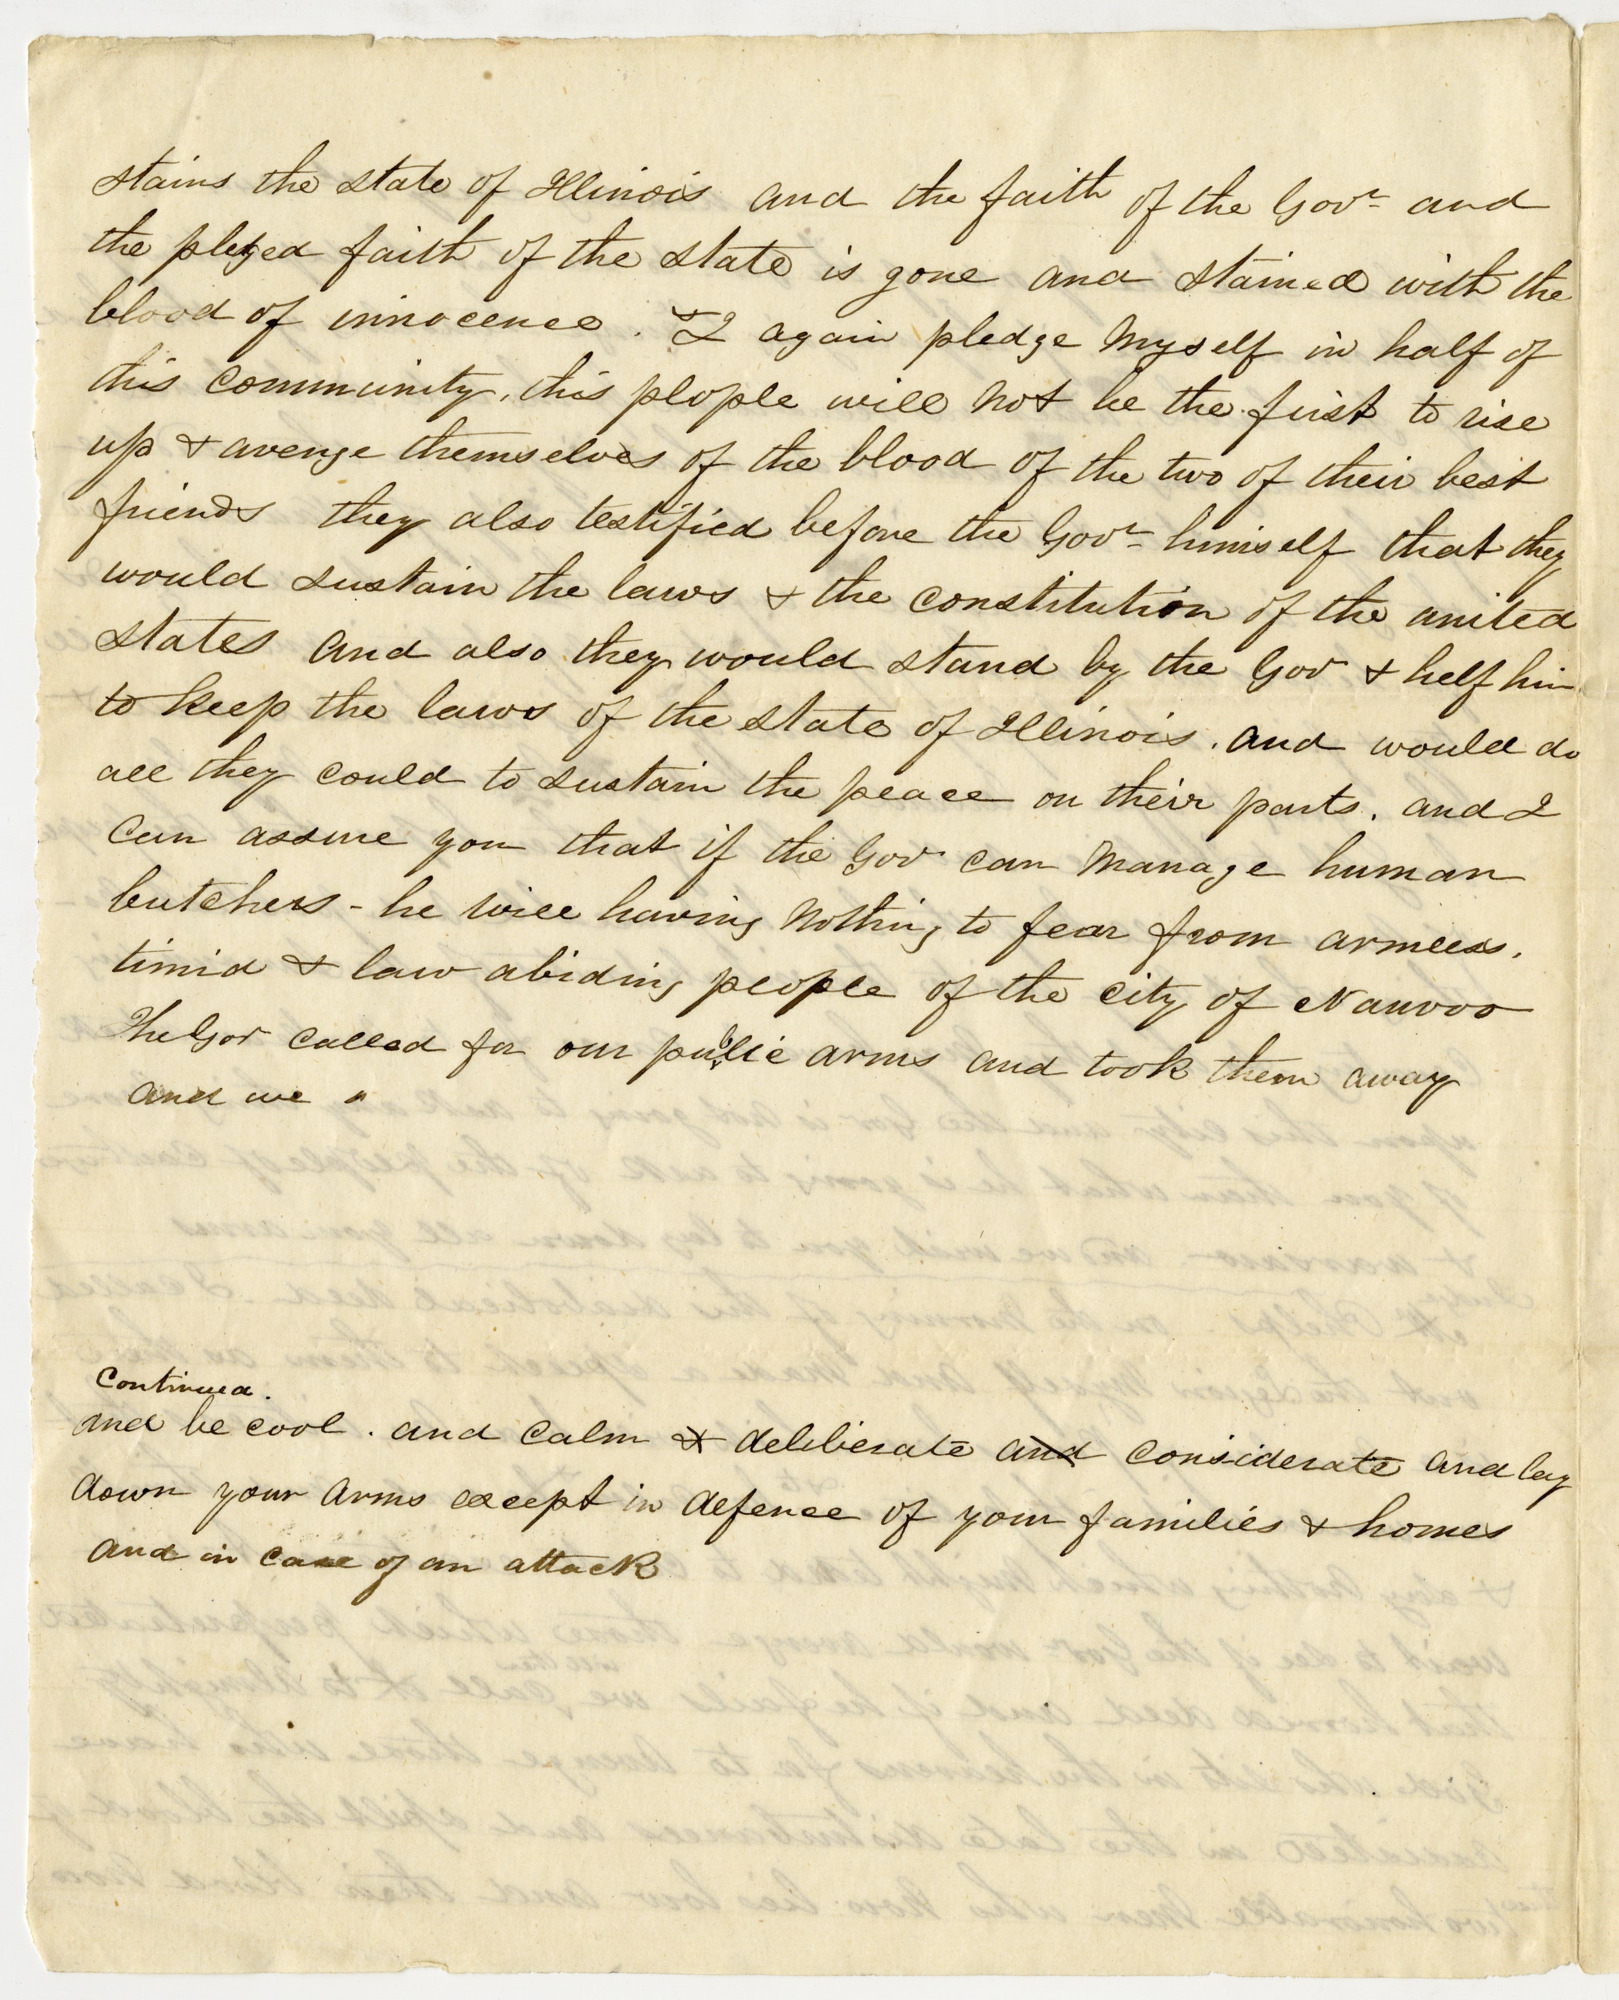 stains the state of Illinois and the faith of the Govr and
the pleged faith of the state is gone and stained with the
blood of innocence. I again pledge myself in half of
this community, this plople will not be the first to rise
up & avenge themselves of the blood of the two of their best
friends they also testified before the Govr himself that they
would sustain the laws & the constitution of the united
states and also they would stand by the Gov & helf him
to keep the laws of the state of Illinois. and would do
all they could to sustain the peace on their parts. and I
can assure you that if the Gov can manage human
butchers - he will having nothing to fear from armless.
timid & law abiding people of the city of Nauvoo
The Gov called for our public arms and took them away
and we
Continued.
and be cool. and calm & deliberate and considerate and lay
down your arms except in defence of your families & homes
and in case of an attack